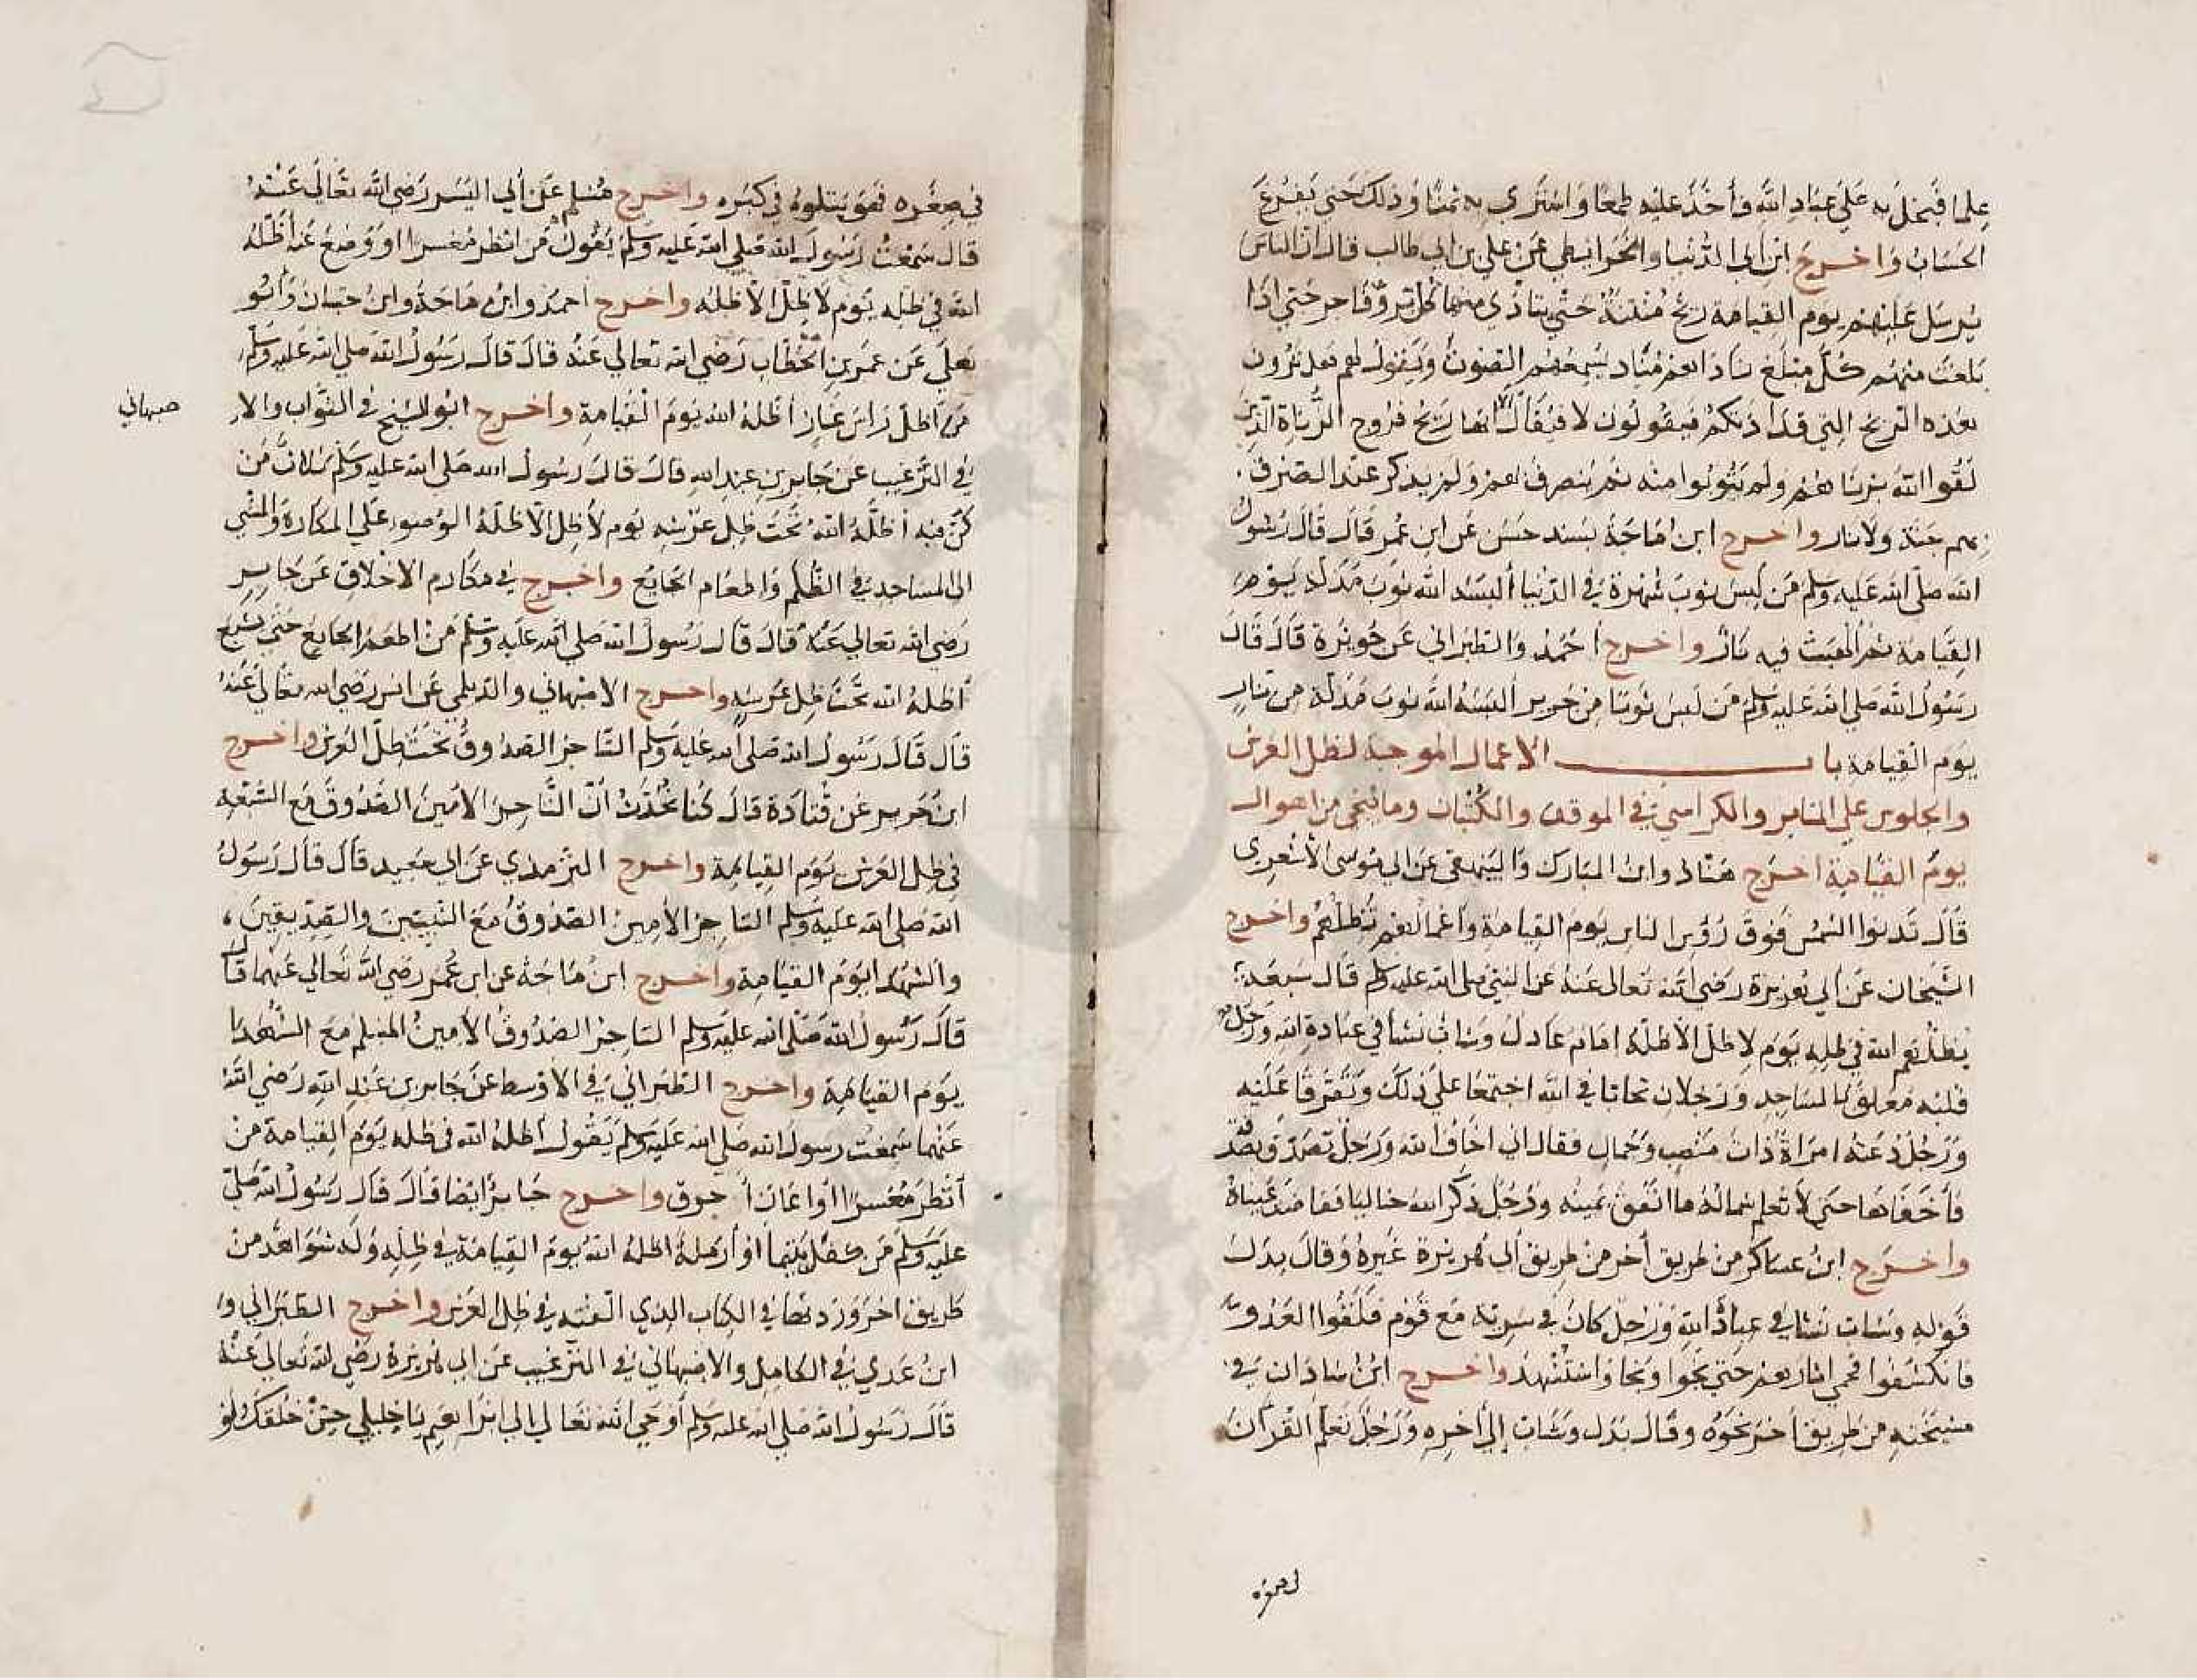 علما فبخل به على عباد الله وأخذ عليه طمعا واشترى به ثمنا وذلك حتى يفرغ
الحساب واخرج ابن ابى الدنيا والخرايطي عن علي بن ابي طالب قال ان الناس
يرسل عليهم يوم القيامة ريح مُنتنة حتى يتاذي منها كل بر وفاجر حتي اذا
بلغت منهم كل مبلغ ناداهم مُناد يسمعهم الصوت ويقول لهم هل تدرون
هذه الريح التي قد اذتكم فيقولون لا فيقال الا انها ريح فروج الزناة الذين
لقوا الله بزناهم ولم يتوبوا منه ثم ينصرف بهم ولم يذكر عند الصرف
بهم جنة ولا نار واخرج ابن ماجة بسند حسن عن ابن عمر قال قال رسول
الله صلى الله عليه وسلم من لبس ثوب شهرة في الدنيا ألبسه الله ثوب مذلة يوم
القيامة ثم ألهبت فيه نار واخرج أحمد والطبراني عن جويرة قال قال
رسول الله صلى الله عليه وسلم من لبس ثوبا من حرير ألبسه الله ثوب مذلة من نار
يوم القيامة باب الاعمال الموجبة لظل العرش
والجلوس علي المنابر والكراسي في الموقف والكثبان وما ينجي من اهوال
يوم القيامة اخرج هناد وابن المبارك والبيهقي عن ابي موسى الأشعري
قال تدنوا الشمس فوق رؤس الناس يوم القيامة وأعمالهم تظلهم واخرج
الشيخان عن أبي هريرة رضي الله تعالى عنه عن النبي صلى الله عليه وسلم قال سبعة
يظلهم الله في ظله يوم لا ظل الا ظله امام عادل وشاب نشأ في عبادة الله ورجل
قلبه معلق بالمساجد ورجلان تحابا في الله اجتمعا علي ذلك وتفرقا عليه
ورجل دعته امرأة ذات منصب وجمال فقال اني اخاف الله ورجل تصدق بصدقة
فأخفاها حتي لا تعلم شماله ما انفق يمينه ورجل ذكر الله خاليا ففاضت عيناه
واخرج ابن عساكر من طريق أخر من طريق أبي هريرة غيره وقال بدل
قوله وشاب نشأ في عبادة الله ورجل كان في سرية مع قوم فلقوا العدو
فانكشفوا فحمي اثارهم حتي نجوا ونجا واستشهد واخرج ابن شاذان في
مشيخته من طريق أخر نحوه وقال بدل وشاب إلى أخره ورجل تعلم القرآن
في صغره
في صغره فهو يتلوه في كبره واخرج مسلم عن أبي اليسر رضي الله تعالى عنه
قال سمعت رسول الله صلى الله عليه وسلم يقول من انظر معسرا او وضع عنه أظله
الله في ظله يوم لا ظل الا ظله واخرج احمد وابن ماجة وابن حبان وأبو
يعلى عن عمر بن الخطاب رضي الله تعالي عنه قال قال رسول الله صلي الله عليه وسلم
من أظل راس غاز أظله الله يوم القيامة واخرج ابو الشيخ في الثواب والا
صبهاني
في الترغيب عن جابر بن عبد الله قال قال رسول الله صلى الله عليه وسلم ثلاث من
كن فيه أظله الله تحت ظل عرشه يوم لا ظل الا ظله الوضوء علي المكاره والمشي
الى المساجد في الظلم واطعام الجايع واخرج في مكارم الاخلاق عن جابر
رضي الله تعالي عنه قال قال رسول الله صلي الله عليه وسلم من أطعم الجايع حتي يشبع
أظله الله تحت ظل عرشه واخرج الاصبهاني والديلمي عن انس رضي الله تعالي عنه
قال قال رسول الله صلى الله عليه وسلم التاجر الصدوق تحت ظل العرش واخرج
ابن جرير عن قتادة قال كنا نحدث أن التاجر الأمين الصدوق مع السبعة
في ظل العرش يوم القيامة واخرج الترمذي عن ابي سعيد قال قال رسول
الله صلى الله عليه وسلم التاجر الأمين الصدوق مع النبيين والصديقين
والشهدا يوم القيامة واخرج ابن ماجة عن ابن عمر رضي الله تعالي عنهما قال
قال رسول الله صلى الله عليه وسلم التاجر الصدوق الأمين المسلم مع الشهدا
يوم القيامة واخرج الطبراني في الأوسط عن جابر بن عبد الله رضي الله
عنهما سمعت رسول الله صلى الله عليه وسلم يقول أظله الله في ظله يوم القيامة من
أنظر معسرا او اعان أخرق واخرج جابر ايضا قال قال رسول الله صلى
عليه وسلم من كفل يتيما او أرملة اظله الله يوم القيامة في ظله وله شواهد من
طريق اخر وردتها في الكتاب الذي الفته في ظل العرش واخرج الطبراني و
ابن عدي في الكامل والاصبهاني في الترغيب عن ابي هريرة رضي الله تعالي عنه
قال رسول الله صلى الله عليه وسلم أوحي الله تعالي الي ابراهيم يا خليلي حسن خلقك ولو